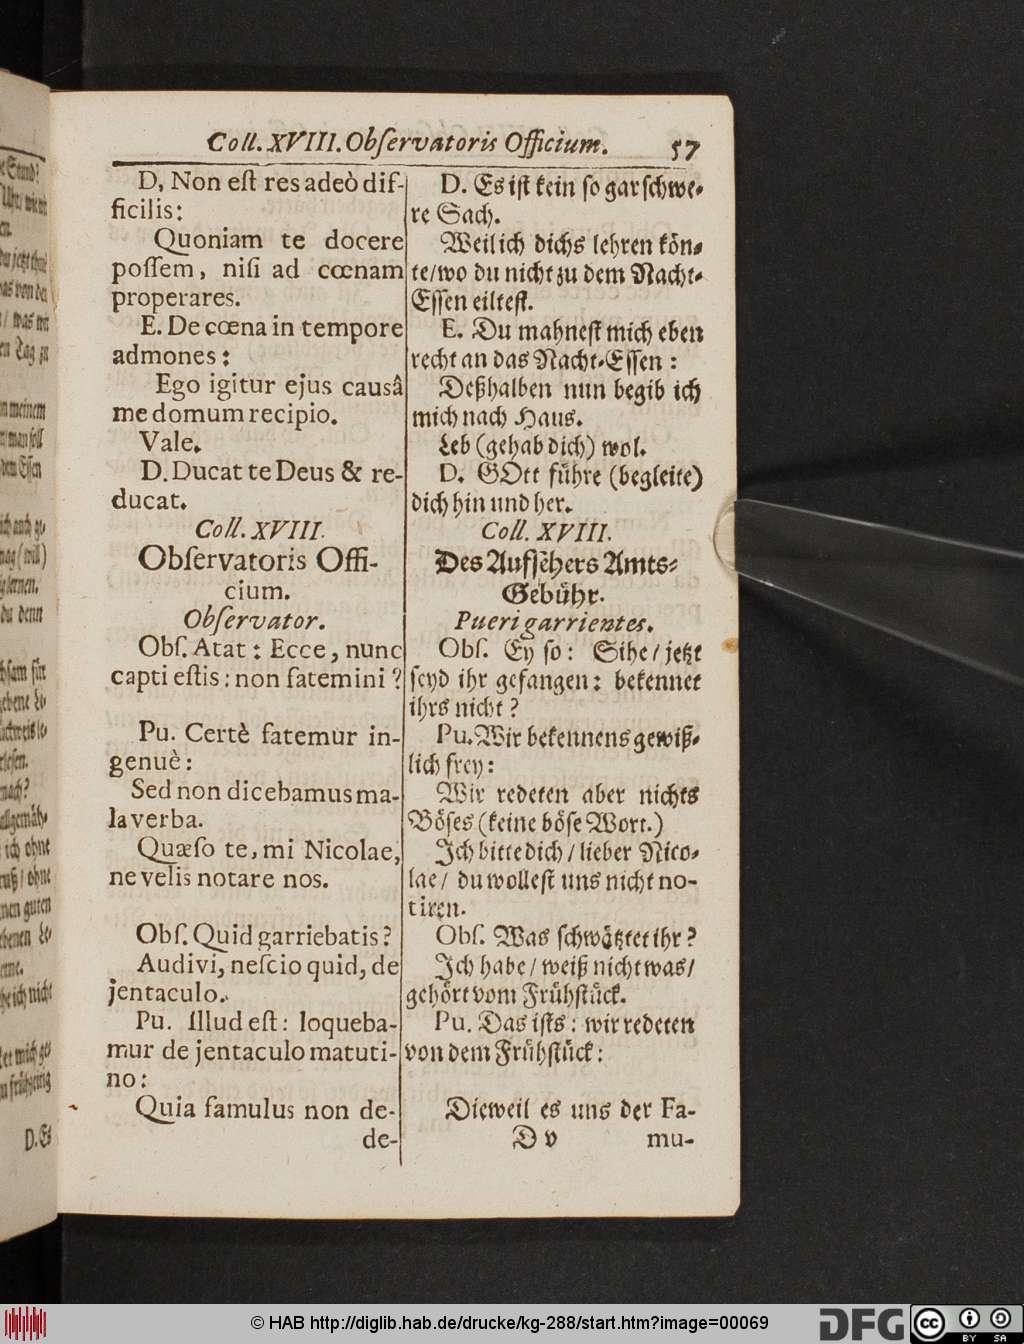 Coll. XVIII. Obſervatoris Officium. 57
D, Non eſt res adeò dif-
ficilis:
Quoniam te docere
poſſem, niſi ad cœnam
properares.
E. De cœna in tempore
admones:
Ego igitur ejus causâ
me domum recipio.
Vale.
D. Ducat te Deus & re-
ducat.
Coll. XVIII.
Obſervatoris Offi-
cium.
Obſervator.
Obſ. Atat: Ecce, nunc
capti eſtis: non fatemini?
Pu. Certè fatemur in-
genuè:
Sed non dicebamus ma-
la verba.
Quæſo te, mi Nicolae,
ne velis notare nos.
Obſ. Quid garriebatis?
Audivi, neſcio quid, de
jentaculo.
Pu. Illud eſt: loqueba-
mur de jentaculo matuti-
no:
Quia famulus non de-
de-
D. Es iſt kein ſo gar ſchwe-
re Sach.
Weil ich dichs lehren kön-
te/ wo du nicht zu dem Nacht-
Eſſen eilteſt.
E. Du mahneſt mich eben
recht an das Nacht-Eſſen:
Deßhalben nun begib ich
mich nach Haus.
Leb (gehab dich) wol.
D. GOtt führe (begleite)
dich hin und her.
Coll. XVIII.
Des Aufſehers Amts-
Gebühr.
Pueri garrientes.
Obſ. Ey ſo: Sihe/ jetzt
ſeyd ihr gefangen: bekennet
ihrs nicht?
Pu. Wir bekennens gewiß-
lich frey:
Wir redeten aber nichts
Böſes (keine böſe Wort.)
Ich bitte dich/ lieber Nico-
lae/ du wolleſt uns nicht no-
tiren.
Obſ. Was ſchwätztet ihr?
Ich habe/ weiß nicht was/
gehört vom Frühſtück.
Pu. Das iſts: wir redeten
von dem Frühſtück:
Dieweil es uns der Fa-
D v mu-
© HAB http://diglib.hab.de/drucke/kg-288/start.htm?image=00069
DFG
cc BY SA